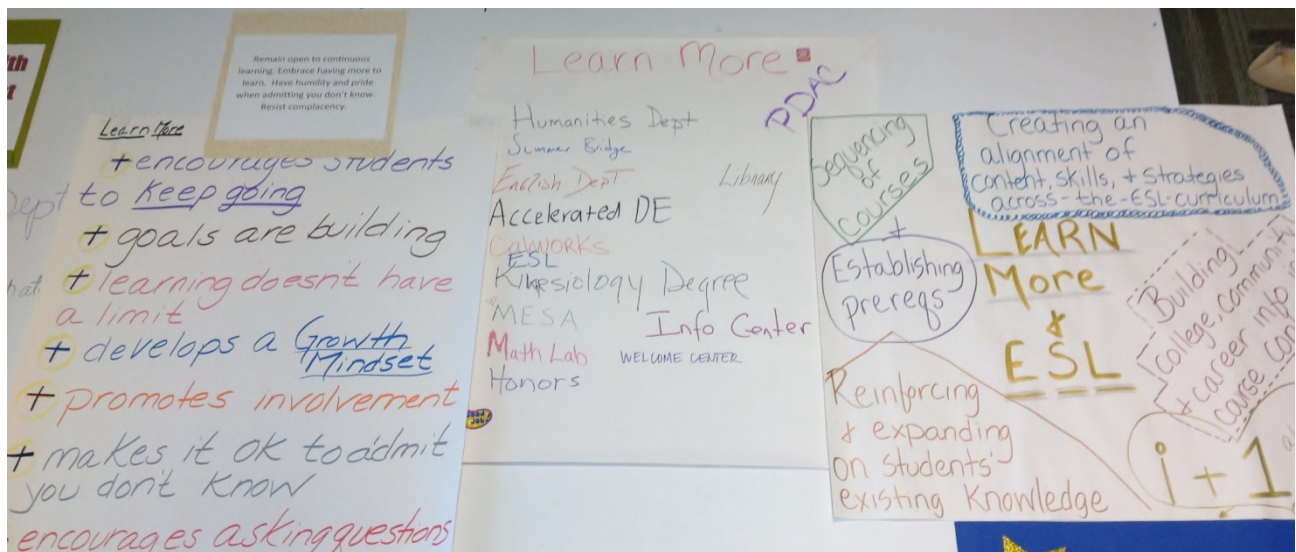 Remain open to continuous
learning. Embrace having more to
learn. Have humility and pride
when admitting you don't know.
Resist complacency.
Learn More
+ encourages students
to keep going
+ goals are building
+ learning doesn't have
a limit
+ develops a Growth
Mindset
+ promotes involvement
+ makes it ok to admit
you don't know
encourages asking questions
Dept
hat
Learn More
PDAC
Humanities Dept
Summer Bridge
English Dept.
Library
Accelerated DE
CalWORKS
ESL
Kinesiology Degree
MESA
Info Center
Math Lab
WELCOME CENTER
Honors
Good
Job!
Sequencing
of
Courses
+
Establishing
prereqs
Creating an
alignment of
content, skills, + strategies
across-the-ESL-curriculum
LEARN
More
&
ESL
Building
college, community
+ career info in
course con
Reinforcing
& expanding
on students'
existing knowledge
i + 1